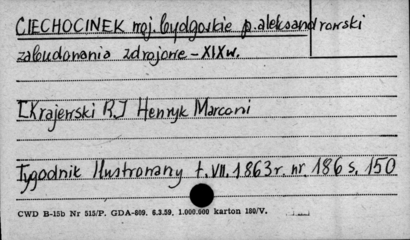 CIECHOCINEK woj. bydgoskie p. aleksandrowski
zabudowania zdrojowe - XIX w.
[Krajewski R.] Henryk Marconi
Tygodnik Ilustrowany t. VII. 1863 r. nr. 186 s. 150
CWD B-15b Nr 515/P. GDA-609. 6.3.59. 1.000.000 karton 180/V.